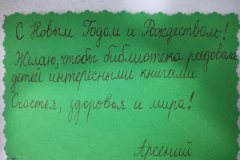 С Новым Годом и Рождеством!
Желаю, чтобы библиотека радовала
детей интересными книгами
Счастья, здоровья и мира!
Арсений